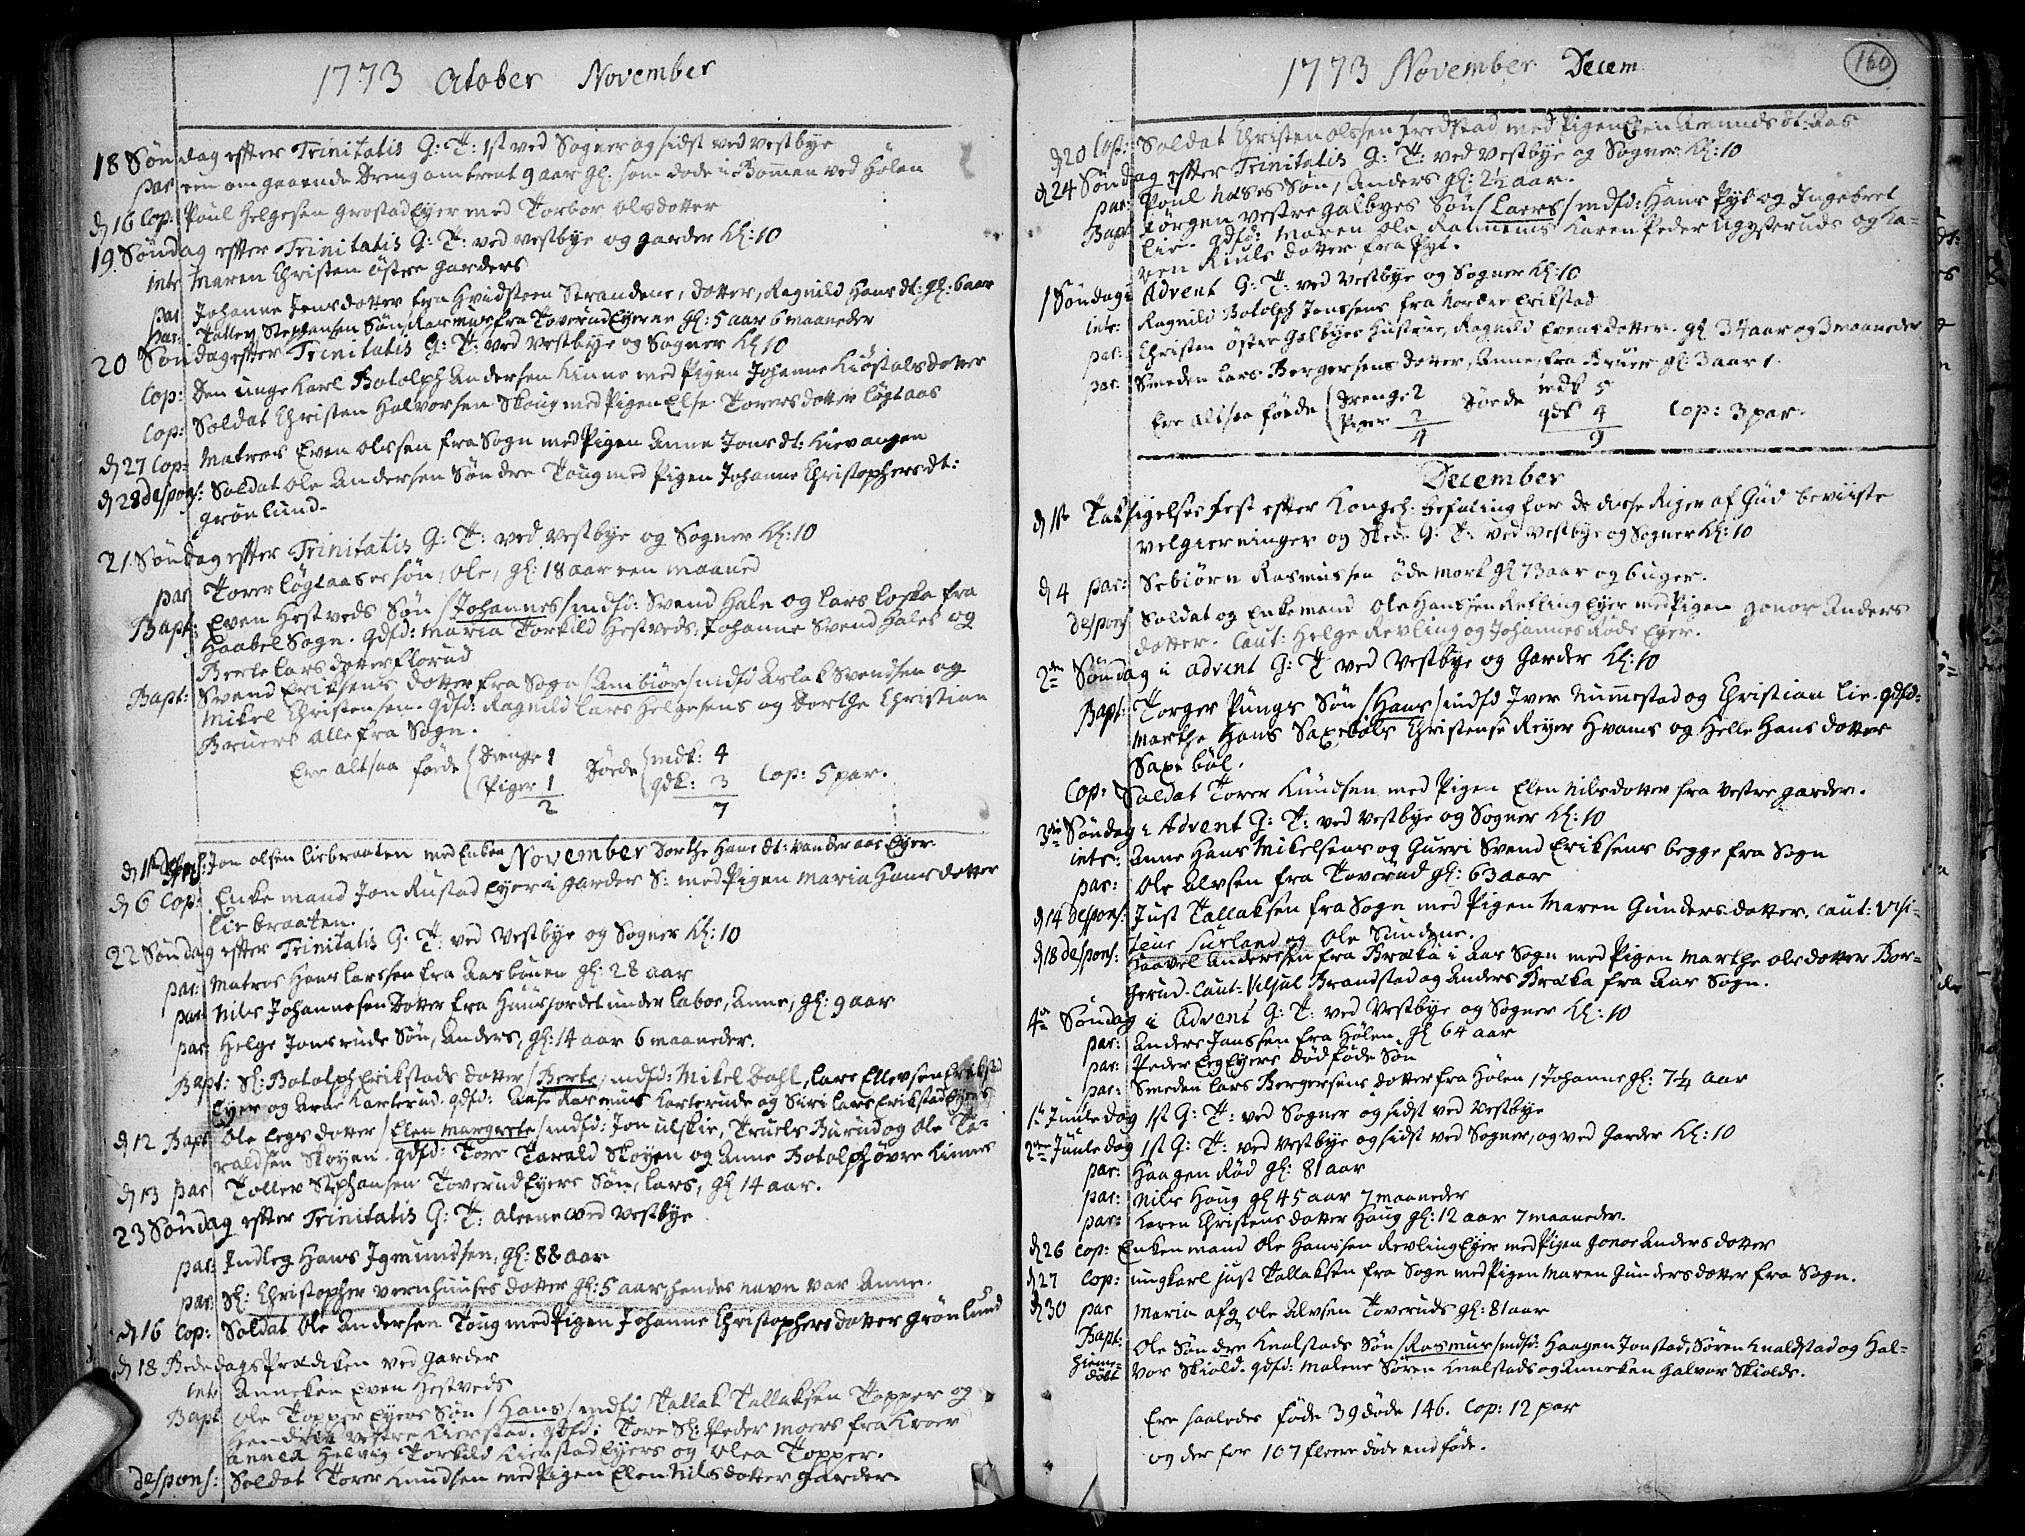 1773 October November
18 Søndag efter Trinitatis G: T: 1st ved Sogner og sidst ved Vestbye
par een omgaaende Dreng omtrent 9 aar gl. som døde i Bommen ved Hølen
d 16 Cop: Poul Helgesen Grostad Eyer med Torbor Olsdotter
19. Søndag efter Trinitatis G: T: ved Vestbye og Garder Kl: 10
intr Maren Christen østre Garders
par Johanne Jensdotter fra Hvidsteen Strandene, dotter, Ragnild Hans dt: gl: 6 aar
par: Tollev Stephansen Søn Rasmus fra Toverud Eyerne gl: 5 aar 6 maaneder
20 Søndag efter Trinitatis G: T: ved Vestbye og Sogner Kl 10
Cop: Den unge Karl Botolph Andersen Kinne med Pigen Johanne Kiøstolsdotter
Cop: Soldat Christen Halvorsen Skoug med Pigen Else Torersdotter Løgtaas
d 27 Cop: Matros Even Olssen fra Sogn med Pigen Anne Jons dt: Kievangen
d 28 despons: Soldat Ole Andersen Søndre Toug med Pigen Johanne Christophers dt:
Grønlund.
21 Søndag efter Trinitatis G: T: ved Vestbye og Sogner Kl: 10
par Torer Løgtaases søn, Ole, gl: 18 aar een maaned
Bapt: Even Hestveds Søn /Johannes/ mdfd: Svend Hale og Lars Loska fra
Haabel Sogn. Qdfd: Maria Torkild Hestveds, Johanne Svend Hales og
Berte Larsdotter Florud
Bapt: Svend Eriksens dotter fra Sogn /Anbiør/ mdfd Aslak Svendsen og
Mikel Christensen. Qdfd: Ragnild Lars Helgesens og Dorthe Christian
Bruers alle fra Sogn.
Ere altsaa føde Drenge 1 Døde mdk: 4
Piger 1 qdk: 3 Cop: 5 par.
2 7
November
d 1st despons: Jon Olsen Liebraaten med Enken Dorthe Hans dt: Vanderaas Eyer
d 6 Cop: Enkemand Jon Rustad Eyer i Garder S: med Pigen Maria Hansdotter
Liebraaten.
22 Søndag efter Trinitatis G: T: ved Vestbye og Sogner Kl: 10
par: Matros Hans Larssen fra Aasbunen gl: 28 aar
par: Nils Johannesen Dotter fra Huusjordet under Laboe, Anne, gl: 9 aar
par: Helge Jonsrude Søn, Anders, gl: 14 aar 6 maaneder.
Bapt: Sl: Botolph Erikstads dotter /Berte/ mdfd: Mikel Dahl, Lars Ellevsen Erikstad
Eyer og Arne Karterud. qdfd: Aase Rasmus Karterude og Siri Lars Erikstad Eyers
d 12 Bapt Ole Legs dotter /Elen Margrete/ mdfd: Jon Ulskie, Truels Burud og Ole To-
raldsen Skøyen. Qdfd: Tore Torald Skøyen og Anne Botolph øvre Kinnes
d 13 par Tollev Stephansen Toverud Eyers Søn, Lars, gl 14 aar.
23 Søndag efter Trinitatis G: T: aleene ved Vestbye
par: Indleg Hans Igmundsen, gl: 88 aar
par Sl: Christopher Vernhuuses dotter gl: 5 aar, hendes navn var Anne.
d 16 Cop: Soldat Ole Andersen Toug med Pigen Johanne Christophersdotter Grønlund
d 18 Bededags Prædiken ved Garder
intr Anneken Even Hestveds
Bapt Ole Topper Eyers Søn /Hans/ mdfd Tallak Tallaksen Topper og
Hendrik Vestre Kierstad. Qdfd: Tore Sl: Peder Moers fra Kroer
Annea Helvig Torkild Kierstad Eyers og Olea Topper.
despons: Soldat Torer Knudsen med Pigen Elen Nilsdotter Garder
1773 November Decem
160
d 20 Cop: Soldat Christen Olssen Fredstad med Pigen Elen Amunds dt: Aas
d 24 Søndag efter Trinitatis G: T: ved Vestbye og Sogner Kl: 10
par: Poul Næses Søn, Anders gl: 2½ aar.
Bapt: Jørgen Vestre Galbyes Søn /Laers/ mdfd: Hans Pyt og Ingebret
Lie. qdfd: Maren Ole Ramums Karen Peder Ugysterude og Ka-
ren Riuls dotter fra Pyt.
1 Søndag i Advent G: T: ved Vestbye og Sogner Kl: 10
intr: Ragnild Botolph Jonssens fra Nordre Erikstad
par: Christen østre Galbyes Hustrue, Ragnild Evensdotter. gl 34 aar og 3 maaneder
par. Smeden Lars Bergersens dotter, Anne, fra Bruer gl: 3 aar 1.
Ere altsaa føde Drenge 2 Døde mdk 5
Piger 2 qdk 4 Cop: 3 par.
4 9
December
d 1st Taksigelses Fest efter Kongel. befaling for de disse Riger af Gud beviiste
velgierninger og Skede G: T: ved Vestbye og Sogner Kl: 10
d 4 par: Sebiørn Rasmussen ødemork gl 73 aar og 6 uger.
despons Soldat og Enkemand Ole Hanssen Refling Eyer med Pigen Gonor Anders
dotter. Caut: Helge Revling og Johannes Røds Eyer.
2den Søndag i Advent G: T ved Vestbye og Garder Kl: 10
Bapt: Torger Pungs Søn /Hans/ mdfd Iver Nummestad og Christian Lie. Qdfd:
Marthe Hans Saxebøls Christense Reyer Hvams og Helle Hans dotter
Saxebøl.
Cop: Soldat Torer Knudsen med Pigen Elen Nilsdotter fra Vestre Garder.
3die Søndag i Advent G: T: ved Vestbye og Sogner Kl: 10
intr: Anne Hans Mikelsens og Gurri Svend Eriksens begge fra Sogn
par: Ole Alvsen fra Toverud gl: 63 aar
d 14 despons: Just Tallaksen fra Sogn med Pigen Maren Gundersdotter. Caut: Visi-
teur Lurland og Ole Sundene.
d 18 despons: Haavel Andersen fra Braka i Aas Sogn med Pigen Marthe Olsdotter Bor-
gerud. Caut: Viljul Brandstad og Anders Braka fra Aas Sogn.
4de Søndag i Advent G: T: ved Vestbye og Sogner Kl: 10
par: Anders Janssen fra Hølen gl 64 aar
par: Peder Leg Eyers dødføde Søn
par: Smeden Lars Bergersens dotter fra Hølen /Johanne gl: 7¼ aar
1st Juuledag 1st G: T: ved Sogner og sidst ved Vestbye
2den Juuledag 1st G: T: ved Vestbye og sidst ved Sogner, og ved Garder Kl: 10
par: Haagen Rød gl: 81 aar
par: Nils Houg gl 45 aar 7 maaneder
par: Karen Christens dotter Houg gl: 12 aar 7 maaneder.
d 26 Cop: Enkemand Ole Hanssen Revling Eyer med Pigen Gonor Anders dotter
d 27 Cop: ungkarl Just Tallaksen fra Sogn med Pigen Maren Gundersdotter fra Sogn.
d 30 par Maria afg. Ole Alvsen Toveruds gl: 81 aar
Bapt: Ole Søndre Knalstads Søn /Rasmus/ mdfd: Haagen Jonstad, Søren Knalstad og Hal-
hiemedøbt vor Skiold. Qdfd: Malene Søren Knalstads og Anneken Halvor Skiolds.
Ere saaledes føde 39 døde 146. Cop: 12 par
og der for 107 fleere døde end føde.